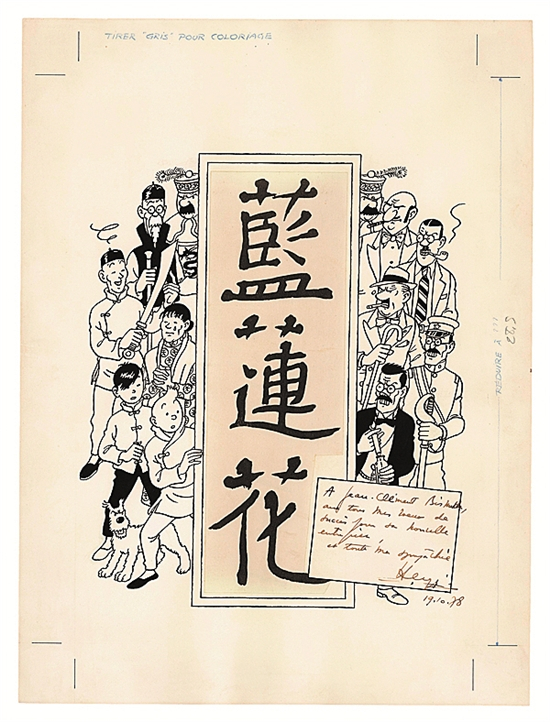 TIRER "GRIS" POUR COLORIAGE
藍蓮花
RÉDUIRE À
A Jean-Clément
tous mes voeux de
succès pour sa nouvelle
et toute ma sympathie
Hergé
19.10.78